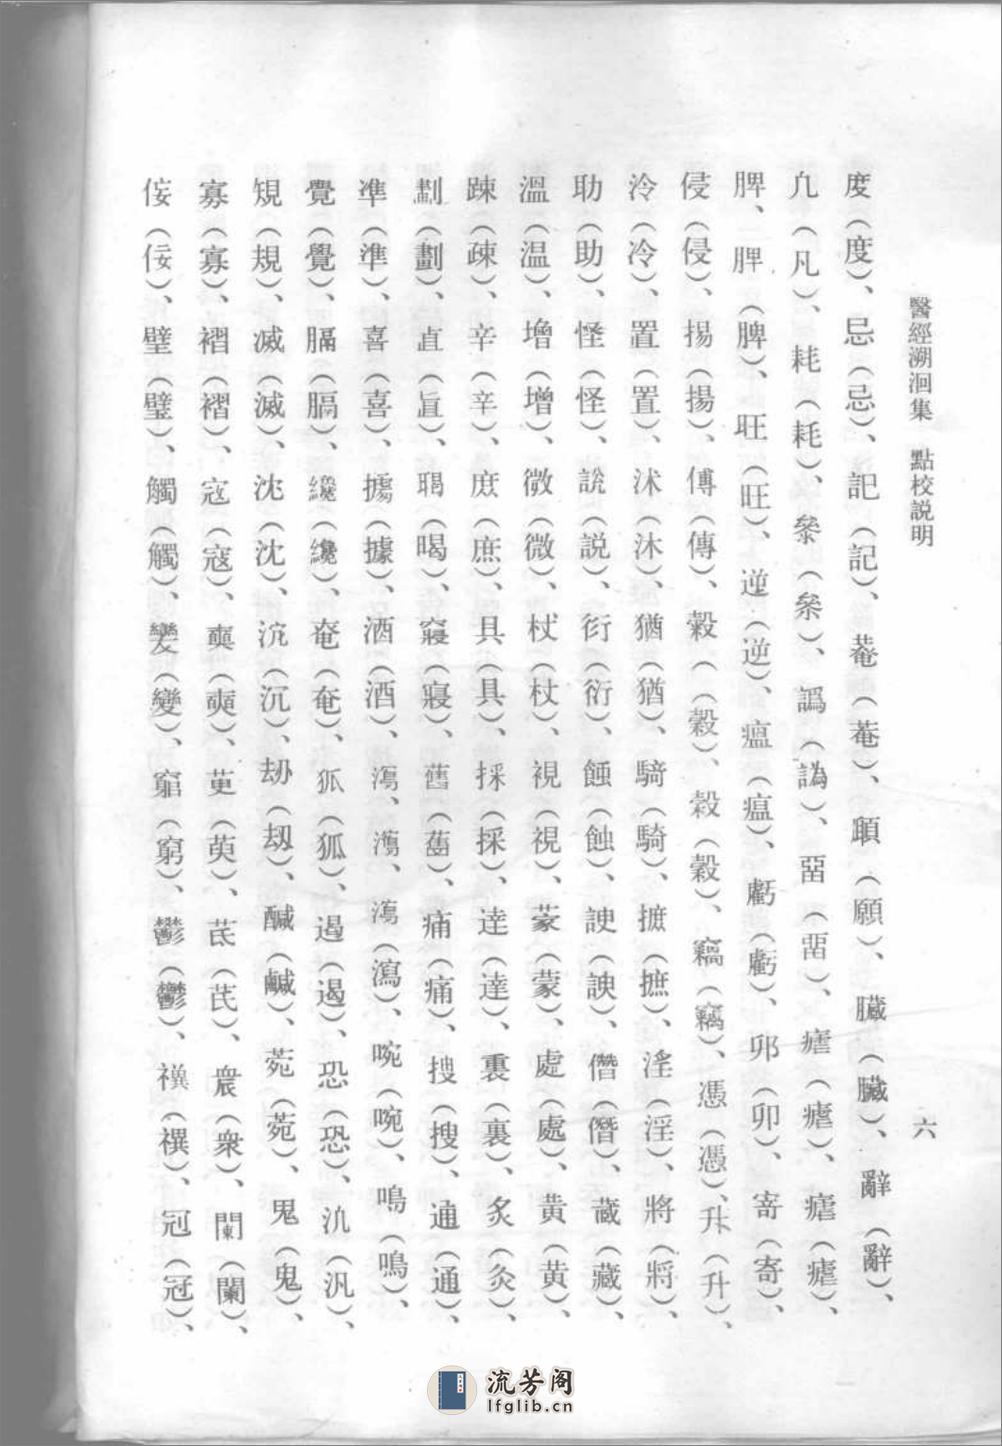 醫經溯洄集 點校説明
六
度（度）、忌（忌）、記（記）、菴（菴）、願（願）、臟（臟）、辭（辭）、
凢（凡）、耗（耗）、叅（叅）、譌（譌）、瘧（瘧）、瘧（瘧）、
脾、脾（脾）、旺（旺）、逆（逆）、瘟（瘟）、虧（虧）、卯（卯）、寄（寄）、
侵（侵）、揚（揚）、傳（傳）、穀（穀）、穀（穀）、竊（竊）、憑（憑）、升（升）、
泠（冷）、置（置）、沐（沐）、猶（猶）、騎（騎）、摭（摭）、淫（淫）、將（將）、
助（助）、恠（怪）、説（説）、衍（衍）、蝕（蝕）、諛（諛）、僭（僭）、藏（藏）、
溫（温）、增（增）、微（微）、杖（杖）、視（視）、蒙（蒙）、處（處）、黄（黄）、
踈（疎）、辛（辛）、庶（庶）、具（具）、採（採）、達（達）、裏（裏）、炙（灸）、
劃（劃）、直（直）、喝（喝）、寢（寢）、舊（舊）、痛（痛）、搜（搜）、通（通）、
凖（準）、喜（喜）、據（據）、酒（酒）、瀉、瀉、瀉（瀉）、啘（啘）、鳴（鳴）、
覺（覺）、膈（膈）、纔（纔）、奄（奄）、狐（狐）、遏（遏）、恐（恐）、汎（汎）、
規（規）、滅（滅）、沈（沈）、沉（沉）、刼（刼）、鹹（鹹）、菀（菀）、鬼（鬼）、
寡（寡）、褶（褶）、寇（寇）、奭（奭）、萸（萸）、芪（芪）、衆（衆）、闌（闌）、
侫（佞）、璧（璧）、觸（觸）、變（變）、窮（窮）、鬱（鬱）、禩（禩）、冠（冠）、
流芳阁
lfglib.cn